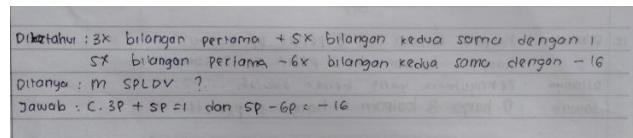 Diketahui : 3x bilangan pertama + 5x bilangan kedua sama dengan 1
5x bilangan pertama -6x bilangan kedua sama dengan - 16
Ditanya : m SPLDV ?
Jawab : C. 3P + 5P = 1 dan 5P - 6P = - 16